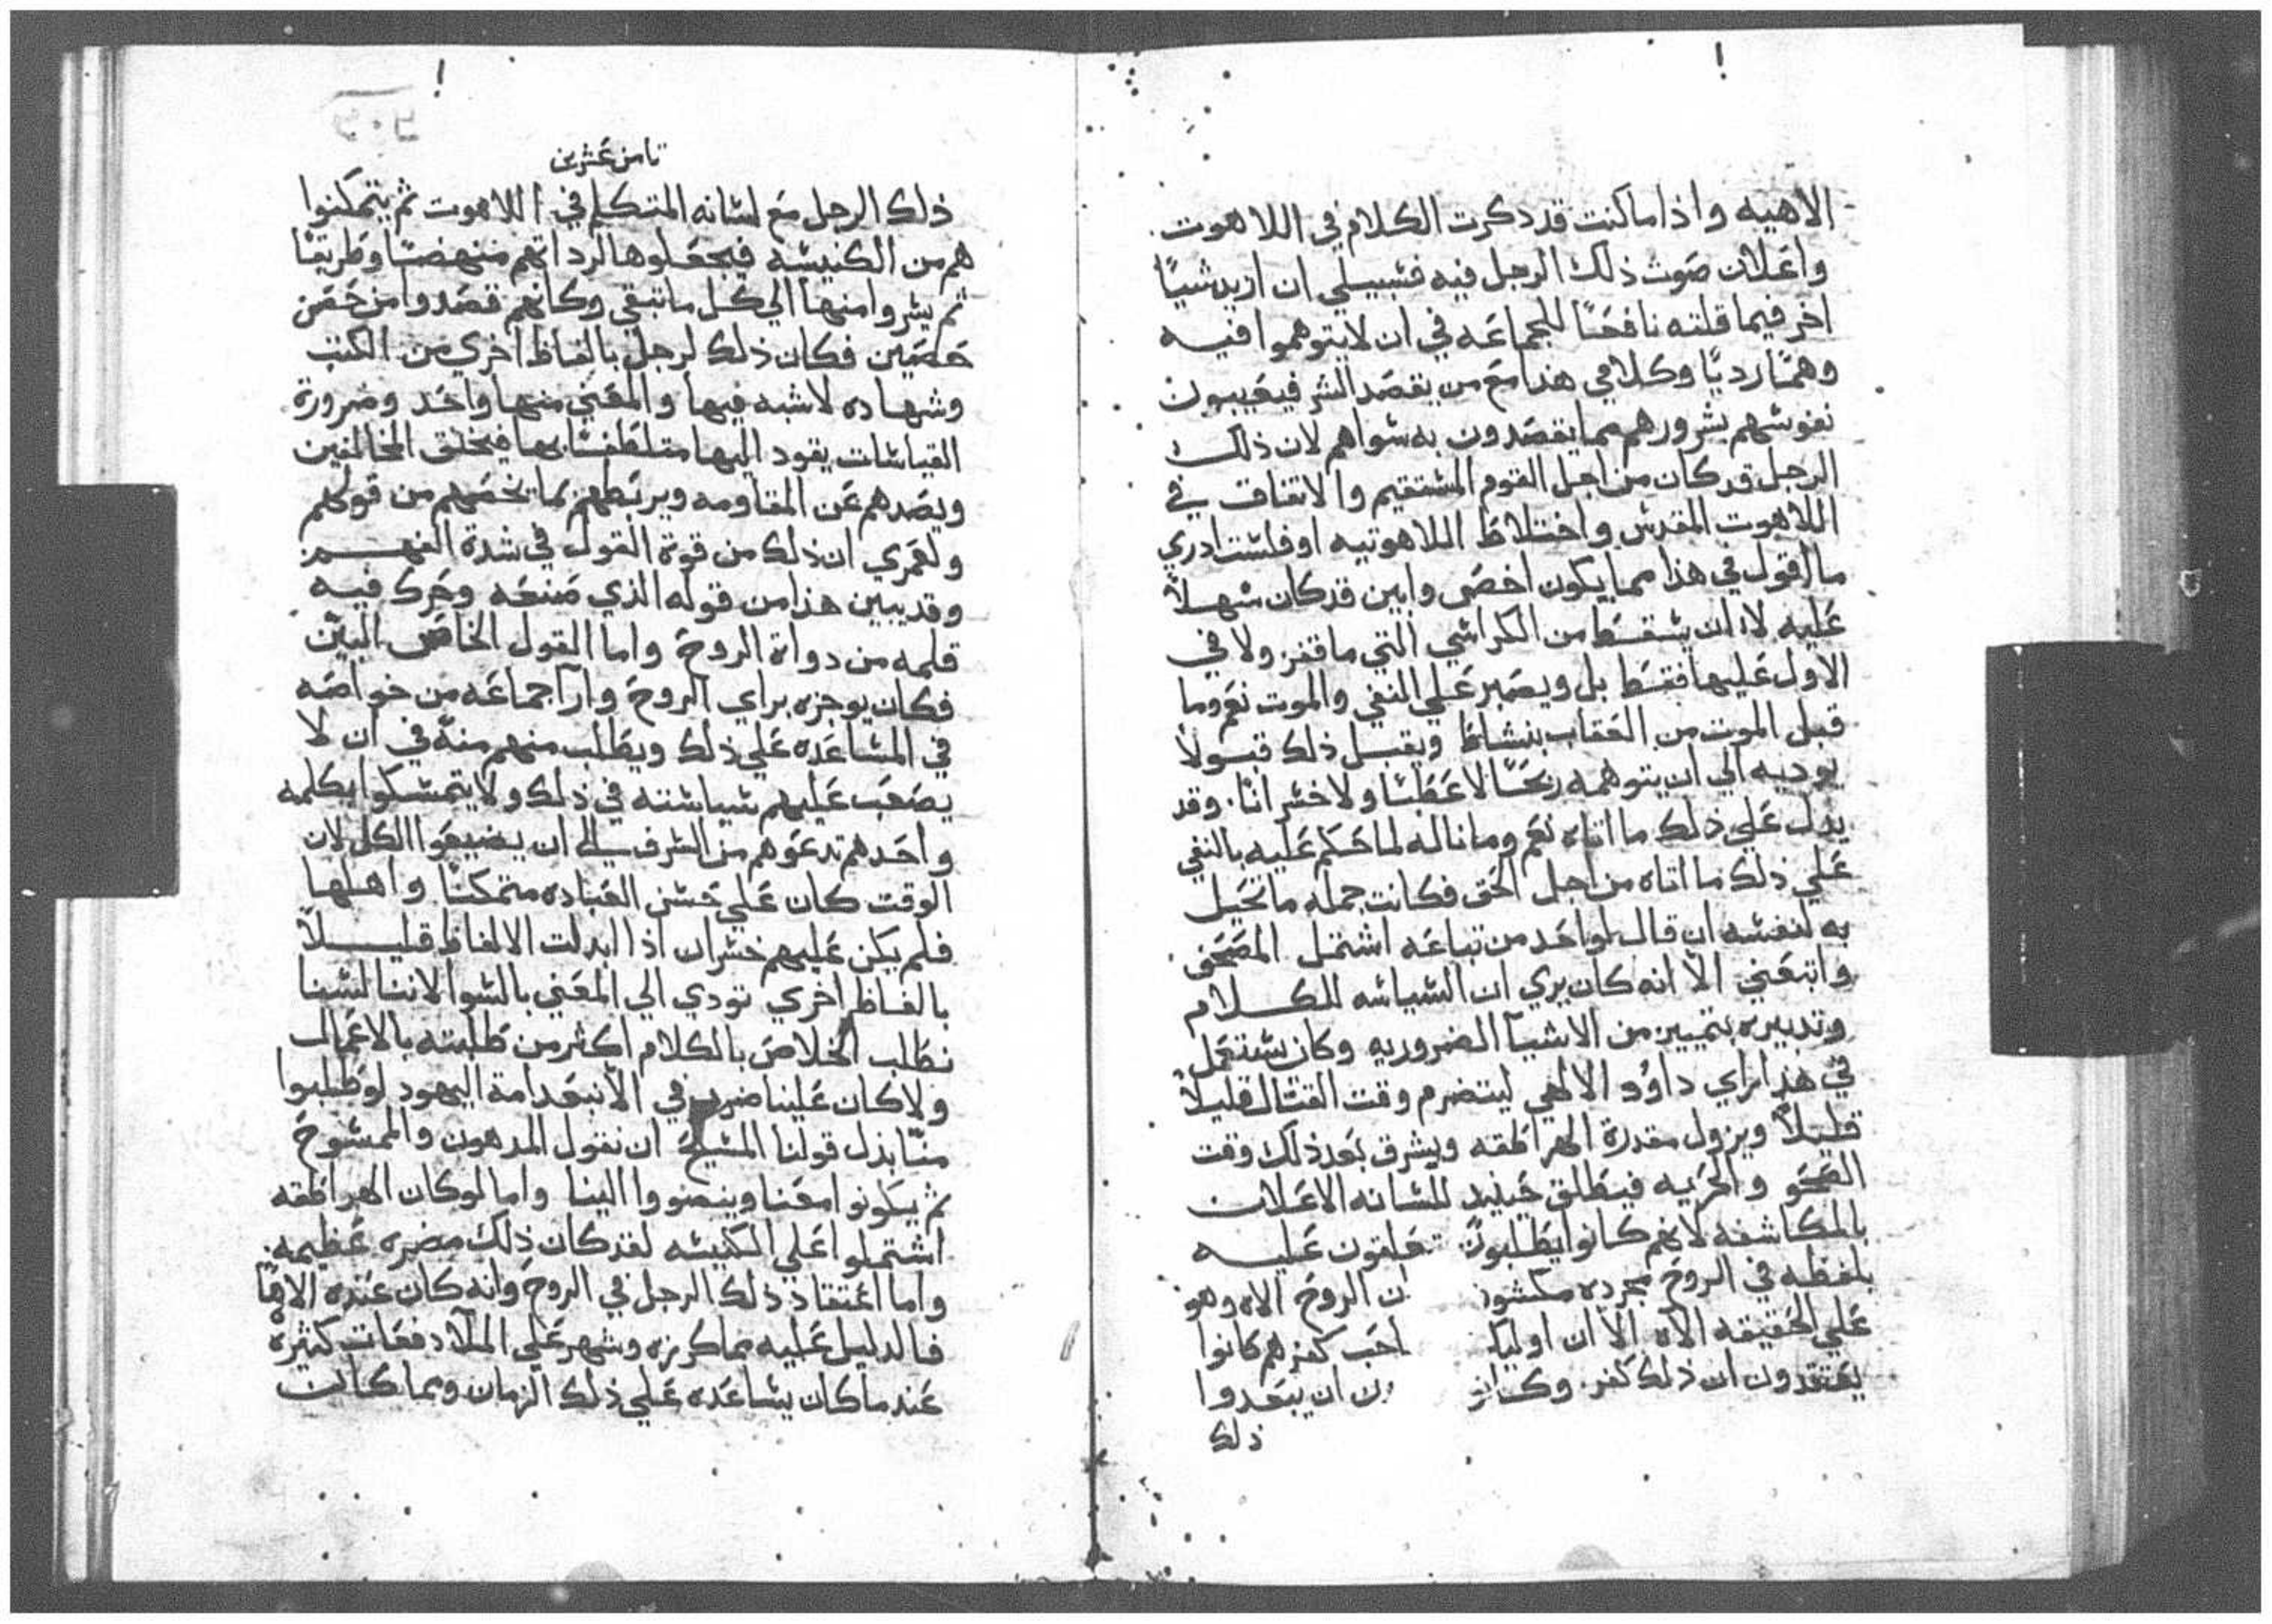 الاهيه واذا ماكنت قد دكرت الكلام في اللاهوت
واعلان صوت ذلك الرجل فيه فسبيلي ان ازيد شياً
اخر فيما قلته نافعاً للجماعه في ان لايتوهموا فيه
وهماً ردياً وكلامي هذا مع من يقصد الشر فيعيبون
نفوسهم بشرورهم مما يقصدون به سواهم لان ذلك
الرجل قد كان من اجل القوم المستقيم والاتفاق في
اللاهوت المقدس واختلاط اللاهوتيه اوفلست ادري
ما اقول في هذا مما يكون اخصى وابين قد كان سهلاً
عليه لا ان يسقط من الكراسي التي ماقفز ولا في
الاول عليها فقط بل ويصبر علي النفي والموت نعم وما
قبل الموت من العقاب بنشاط ويقبل ذلك قبولاً
يوديه الي ان يتوهمه ربحاً لاعطباً ولاخسراناً. وقد
يدل علي ذلك ما اتاه نعم وماناله لما حكم عليه بالنفي
علي ذلك ما اتاه من اجل الحق فكانت جمله ماتحيل
به لنفسه ان قال لواحد من تباعه اشتمل المصحفى
واتبعني الا انه كان يري ان السياسه للكلام
وتدبيره بتمييز من الاشيآ الضروريه وكان يستعمل
في هذا براي داوود الالاهي ليتضرم وقت القتال قليلاً
قليلاً ويزول مقدرة الهراطقه ويشرق بعد ذلك وقت
الصحو والحريه فيطلق حينيد للسانه الاعلان
بالمكاشفه لانهم كانوا يطلبون تعلقون عليه
بلفظه في الروح مجرده مكشوز ان الروح الاه وهو
علي الحقيقه الاه الا ان اوليا احب كفرهم كانوا
يعتقدون ان ذلك كفر. وكان ين ان يبعدوا
ذلك
ثامن عشرين
ذلك الرجل مع لسانه المتكلم في اللاهوت ثم يتمكنوا
هم من الكنيسه فيجعلوها لرداتهم منهضاً وطريقاً
ثم يثروا منها الي كل ماتبقي وكانهم قصدوا من حصن
حصين فكان ذلك الرجل بالفاظ اخري من الكتب
وشهاده لاشبه فيها والمعني منها واحد وضرورة
القياسات يقود اليها متلطفاً بها فيخلق المخالفين
ويصدهم عن المقاومه ويربطهم بما يخصهم من قولهم
ولعمري ان ذلك من قوة القول في شدة الفهم
وقد يبين هذا من قوله الذي صنعه وحرك فيه
قلمه من دواة الروح واما القول الخاص البين
فكان يوجزه براي الروح وارآ جماعه من خواصه
في المساعده علي ذلك ويطلب منهم منه في ان لا
يصعب عليهم سياسته في ذلك ولايتمسكوا بكلمه
واحدهم تدعوهم من الشرف الي ان يضيعوا الكل لان
الوقت كان علي حسن العباده متمكناً واهلها
فلم يكن عليهم خسران اذا ابدلت الالفاظ قليلاً
بالفاظ اخري تودي الي المعني بالسوا لاننا لسنا
نطلب الخلاص بالكلام اكثر من طلبته بالاعمال
ولاكان علينا ضرب في الا نبعد امة اليهود لوطلبوا
منا بذل قولنا المسيح ان نقول المدهون والممسوح
ثم يكونوا معنا وينضووا الينا واما لوكان الهراطقه
اشتملوا علي الكنيسه لقد كان ذلك مضره عظيمه
واما اعتقاد ذلك الرجل في الروح وانه كان عنده الاهاً
فالدليل عليه بماكرزه وشهر علي الملا دفعات كثيرة
عند ماكان يساعده علي ذلك الزمان وبما كانت